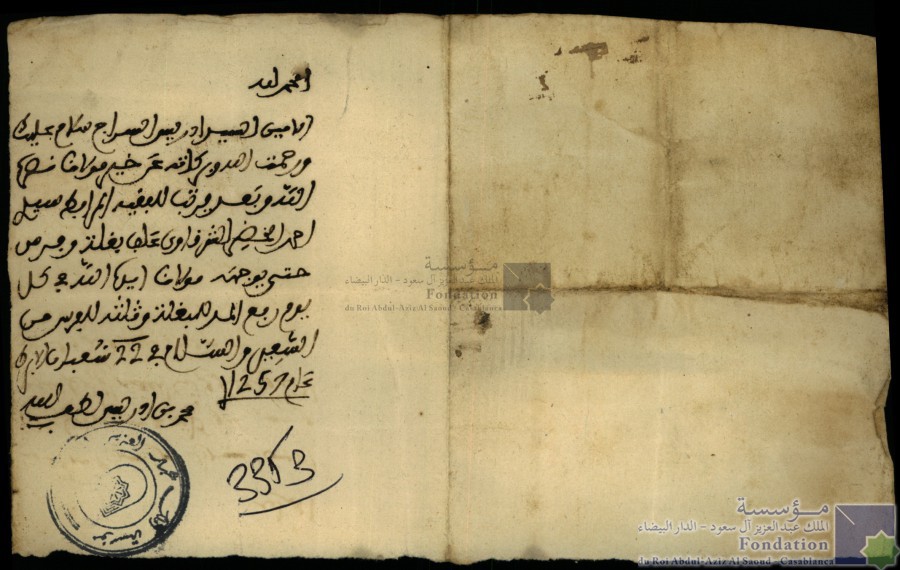 الحمد لله
امين السيد ادريس السراج سلام عليك
ورحمت الله وبركاته عن خير مولانا نصره
الله وبعد للفقيه المرابط سيدي
احمد الشرقاوي علف بغلة وفرس
حتى يوجهه مولانا ايده الله في كل
يوم ربع المد للبغلة وثلثه للفرس من
الشعير والسلام في 22 شعبان
عام 1257
محمد بن ادريس لطف الله به
3353
مؤسسة
الملك عبد العزيز آل سعود - الدار البيضاء
Fondation
du Roi Abdul-Aziz Al Saoud - Casablanca
مؤسسة
الملك عبد العزيز آل سعود - الدار البيضاء
Fondation
du Roi Abdul-Aziz Al Saoud - Casablanca